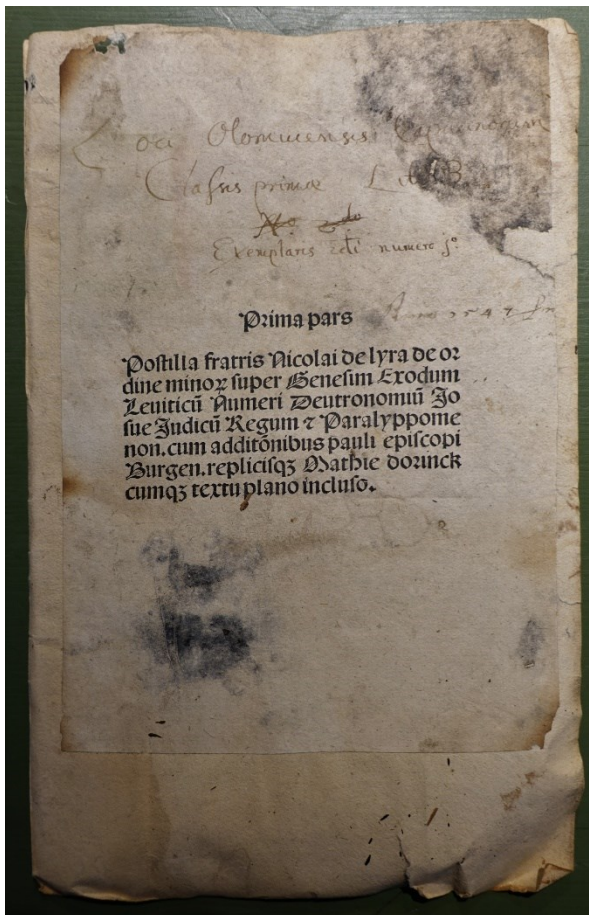 Loci Olomucensis Capucinorum
Classis primæ Lit. B.
No 2do
Exemplaris
numero
Prima pars
Postilla fratris Nicolai de lyra de or
dine minoꝝ super Genesim Exodum
Leuiticū Numeri Deutronomiū Jo
sue Judicū Regum ⁊ Paralyppome
non. cum additōnibus pauli episcopi
Burgen. replicisqꝫ Mathie dorinck
cumqꝫ textu plano incluso.